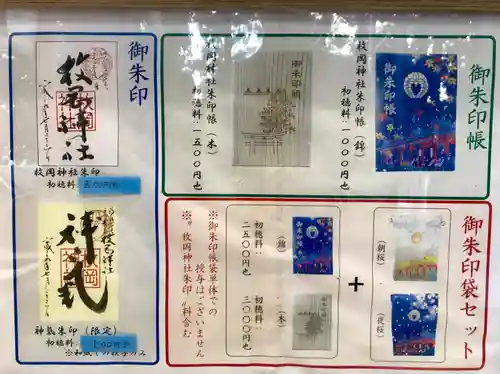 御朱印
枚岡神社
枚岡神社朱印
初穂料 五百円也
神氣
枚岡神社
神氣朱印（限定）
初穂料
御朱印帳
枚岡神社御朱印帳（錦）
初穂料 一〇〇〇円也
御朱印帳
枚岡神社御朱印帳（木）
初穂料 一五〇〇円也
御朱印帳
御朱印袋セット
（朝桜）
（夜桜）
＋
御朱印帳
初穂料：
（錦）
二五〇〇円也
初穂料：
（木）
三〇〇〇円也
※御朱印帳袋単体での
授与はございません
※〝枚岡神社朱印〟料含む